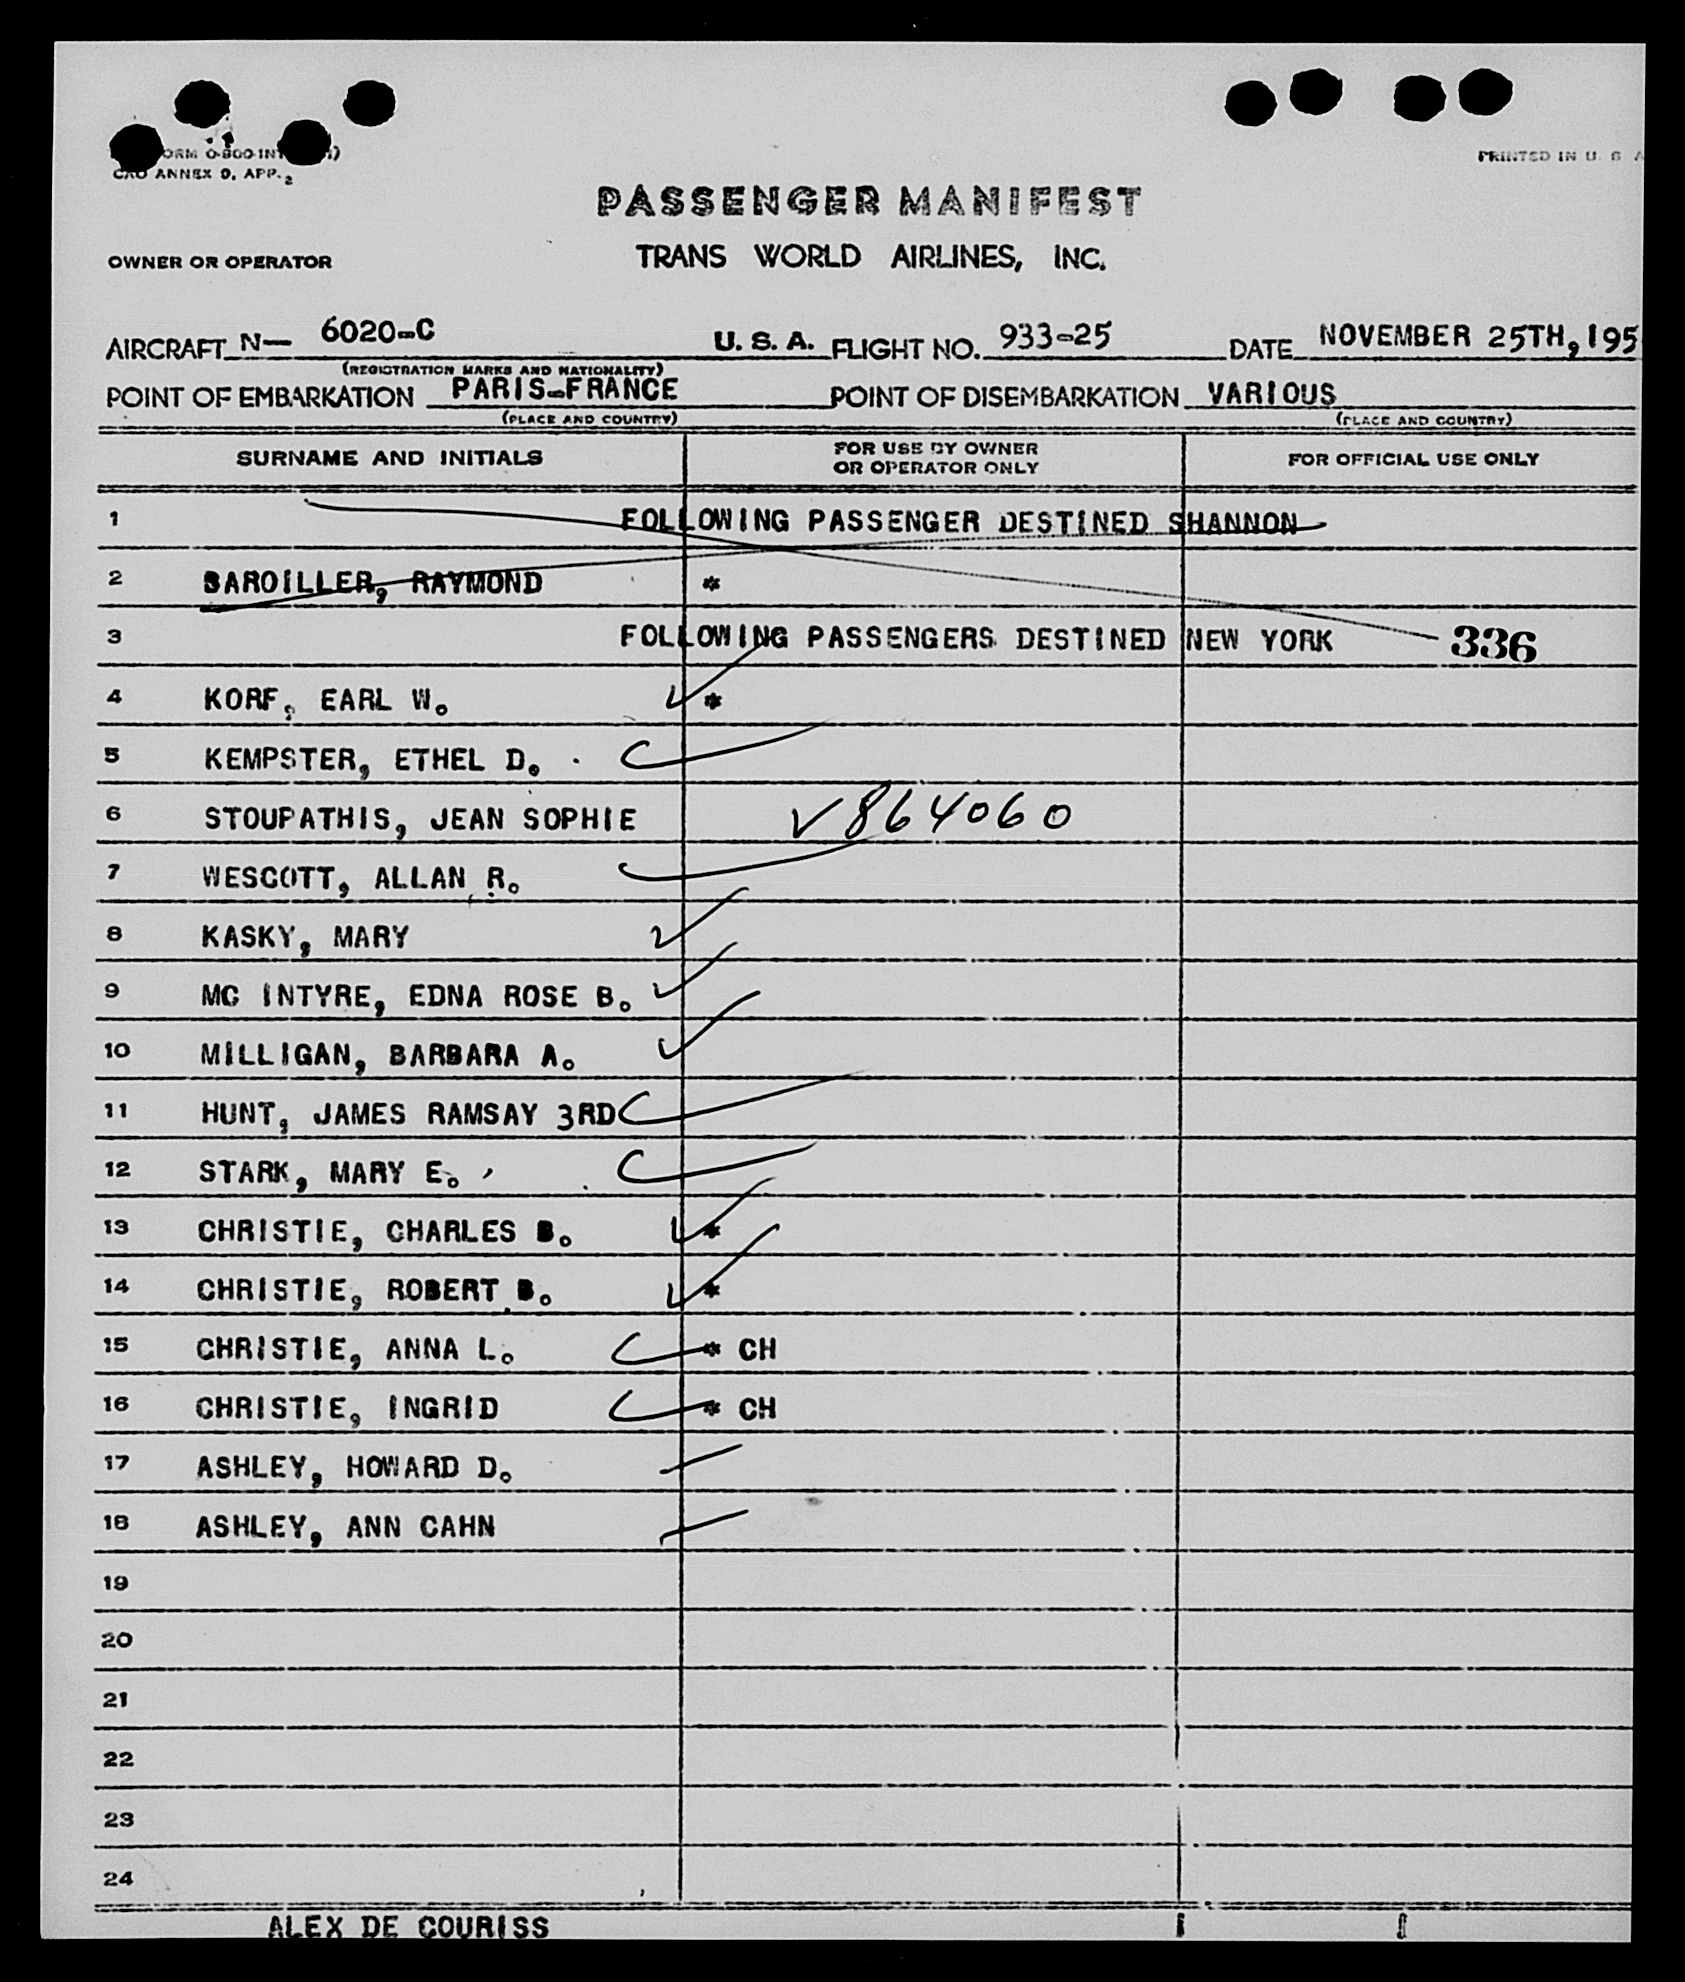 CAO ANNEX 9, APP. 2
PRINTED IN U. S. A
PASSENGER MANIFEST
OWNER OR OPERATOR TRANS WORLD AIRLINES, INC.
AIRCRAFT N— 6020-C U. S. A. FLIGHT NO. 933-25 DATE NOVEMBER 25TH, 195
(REGISTRATION MARKS AND NATIONALITY)
POINT OF EMBARKATION PARIS-FRANCE POINT OF DISEMBARKATION VARIOUS
(PLACE AND COUNTRY) (PLACE AND COUNTRY)
SURNAME AND INITIALS FOR USE BY OWNER OR OPERATOR ONLY FOR OFFICIAL USE ONLY
1 FOLLOWING PASSENGER DESTINED SHANNON
2 BAROILLER, RAYMOND *
3 FOLLOWING PASSENGERS DESTINED NEW YORK 336
4 KORF, EARL W. *
5 KEMPSTER, ETHEL D.
6 STOUPATHIS, JEAN SOPHIE ✓864060
7 WESCOTT, ALLAN R.
8 KASKY, MARY
9 MC INTYRE, EDNA ROSE B.
10 MILLIGAN, BARBARA A.
11 HUNT, JAMES RAMSAY 3RD
12 STARK, MARY E.
13 CHRISTIE, CHARLES B. *
14 CHRISTIE, ROBERT B. *
15 CHRISTIE, ANNA L. * CH
16 CHRISTIE, INGRID * CH
17 ASHLEY, HOWARD D.
18 ASHLEY, ANN CAHN
19
20
21
22
23
24
ALEX DE COURISS